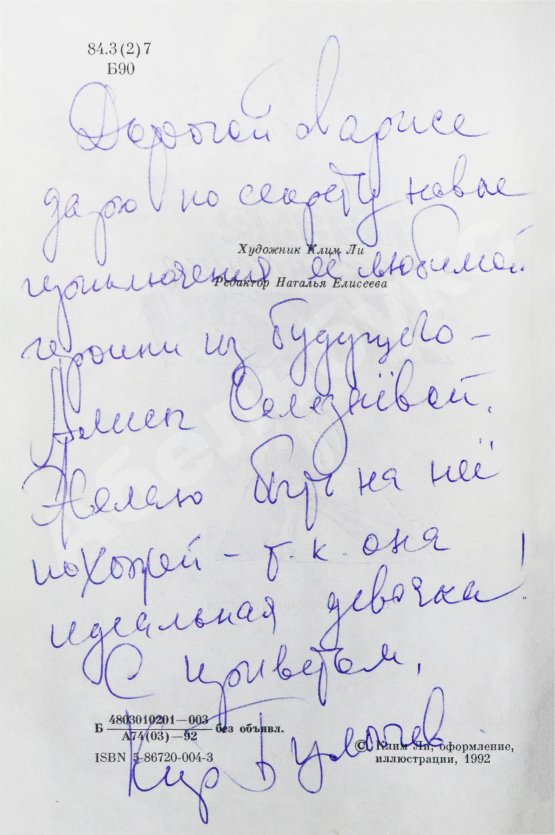 84.3(2)7
Б90
Дорогой Ларисе
дарю по секрету новые
Художник Клим Ли
приключения её любимой
Редактор Наталья Елисеева
героини из будущего –
Алисы Селезнёвой.
Желаю быть на неё
похожей – т.к. она
идеальная девочка!
С приветом,
Б 4803010201—003 без объявл.
А74(03)—92
Кир Булычев
ISBN 5-86720-004-3
© Клим Ли, оформление,
иллюстрации, 1992